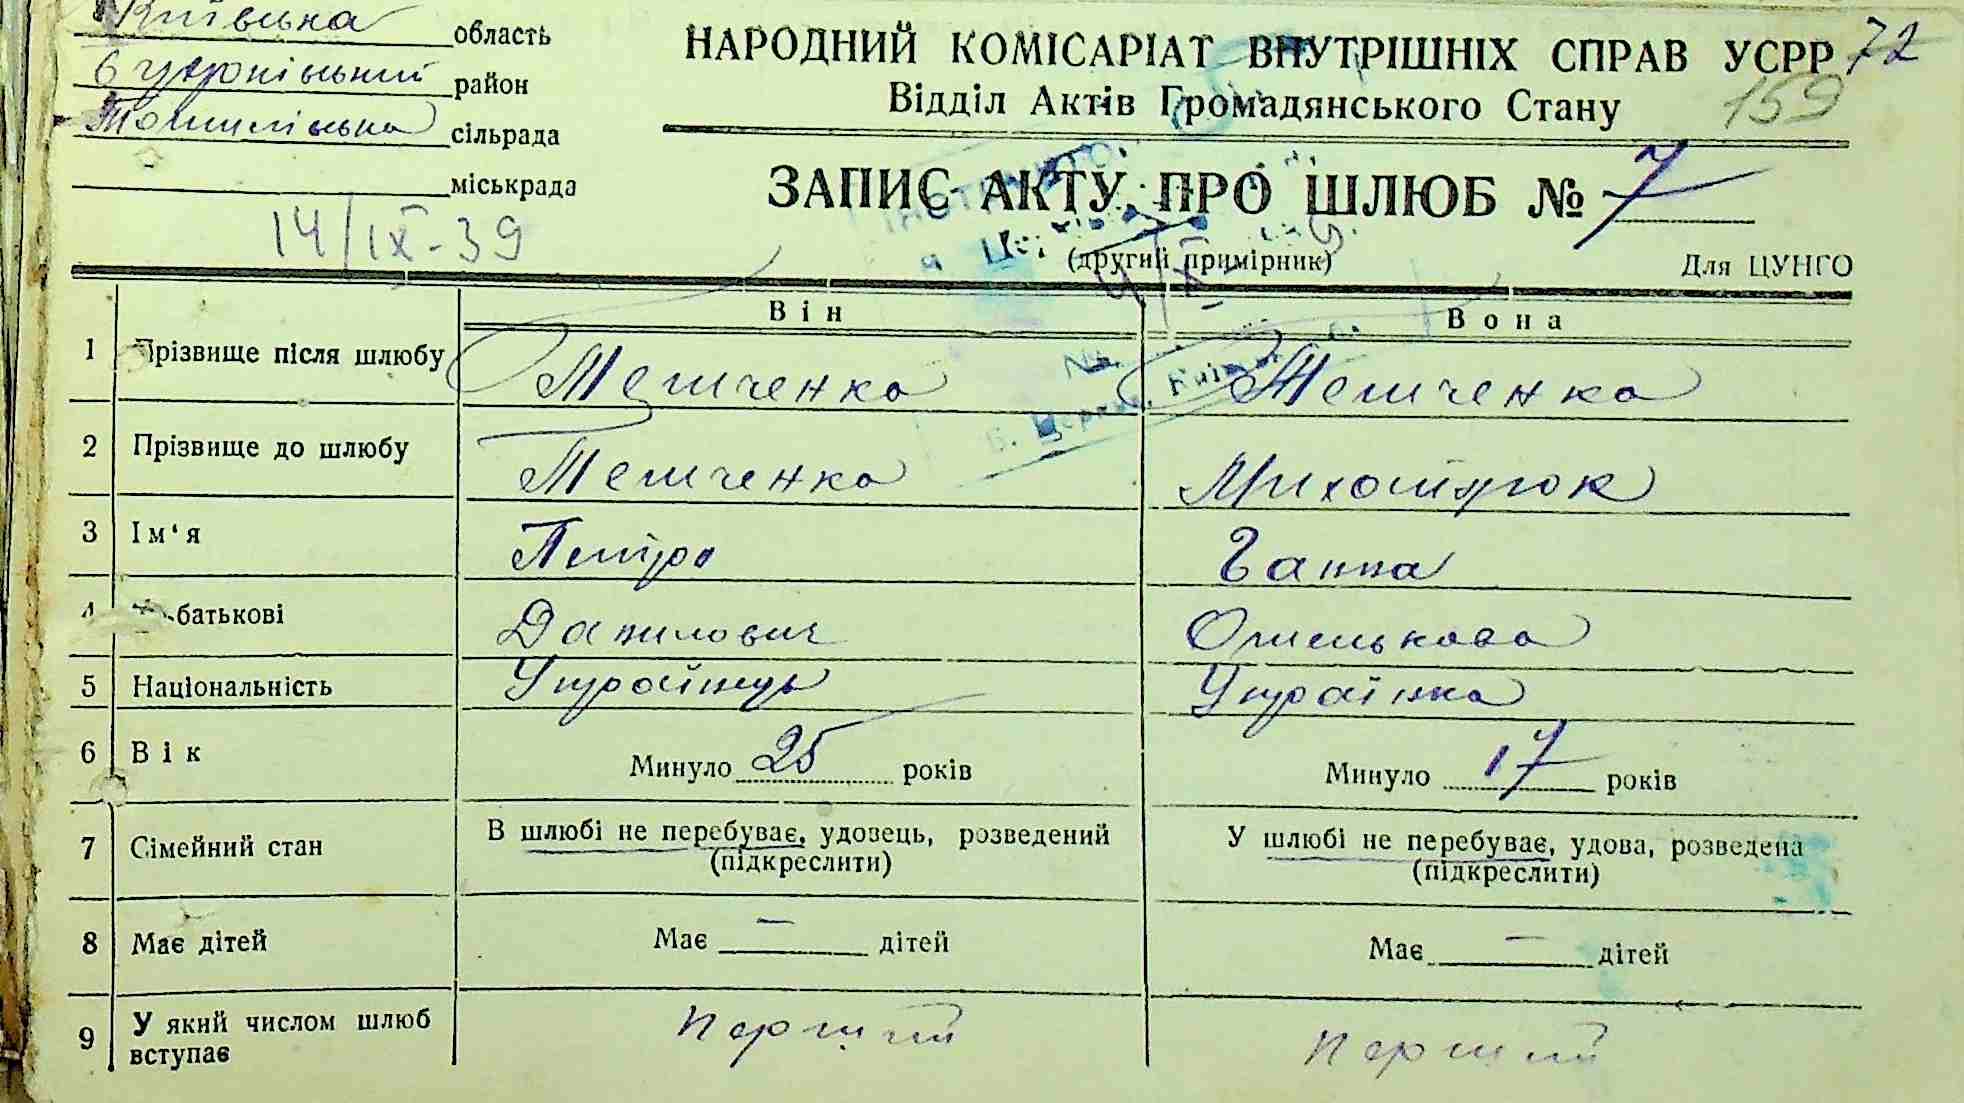 Київська область
район
Томилівська сільрада
міськрада
14/IX-39
НАРОДНИЙ КОМІСАРІАТ ВНУТРІШНІХ СПРАВ УСРР 72
Відділ Актів Громадянського Стану 159
ЗАПИС АКТУ ПРО ШЛЮБ № 7
(другий примірник)
Для ЦУНГО
Він Вона
1 Прізвище після шлюбу
2 Прізвище до шлюбу
3 Ім'я Петро Ганна
батькові Данилович Омелькова
5 Національність Українець Українка
6 Вік Минуло 25 років Минуло 17 років
7 Сімейний стан В шлюбі не перебуває, удовець, розведений У шлюбі не перебуває, удова, розведена
(підкреслити) (підкреслити)
8 Має дітей Має — дітей Має — дітей
9 У який числом шлюб вступає перший перший